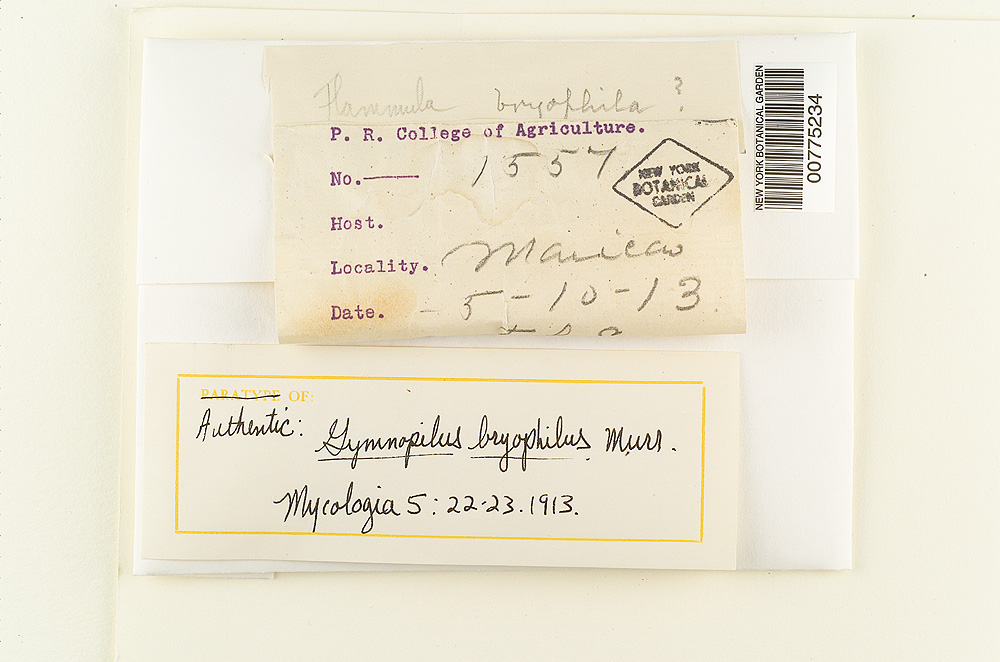 Flammula bryophila ?
P. R. College of Agriculture.
No. 1557
NEW YORK
BOTANICAL
GARDEN
Host.
Locality. Maricao
Date. - 5-10-13
NEW YORK BOTANICAL GARDEN
00775234
PARATYPE OF:
Authentic: Gymnopilus bryophilus Murr.
Mycologia 5: 22-23. 1913.